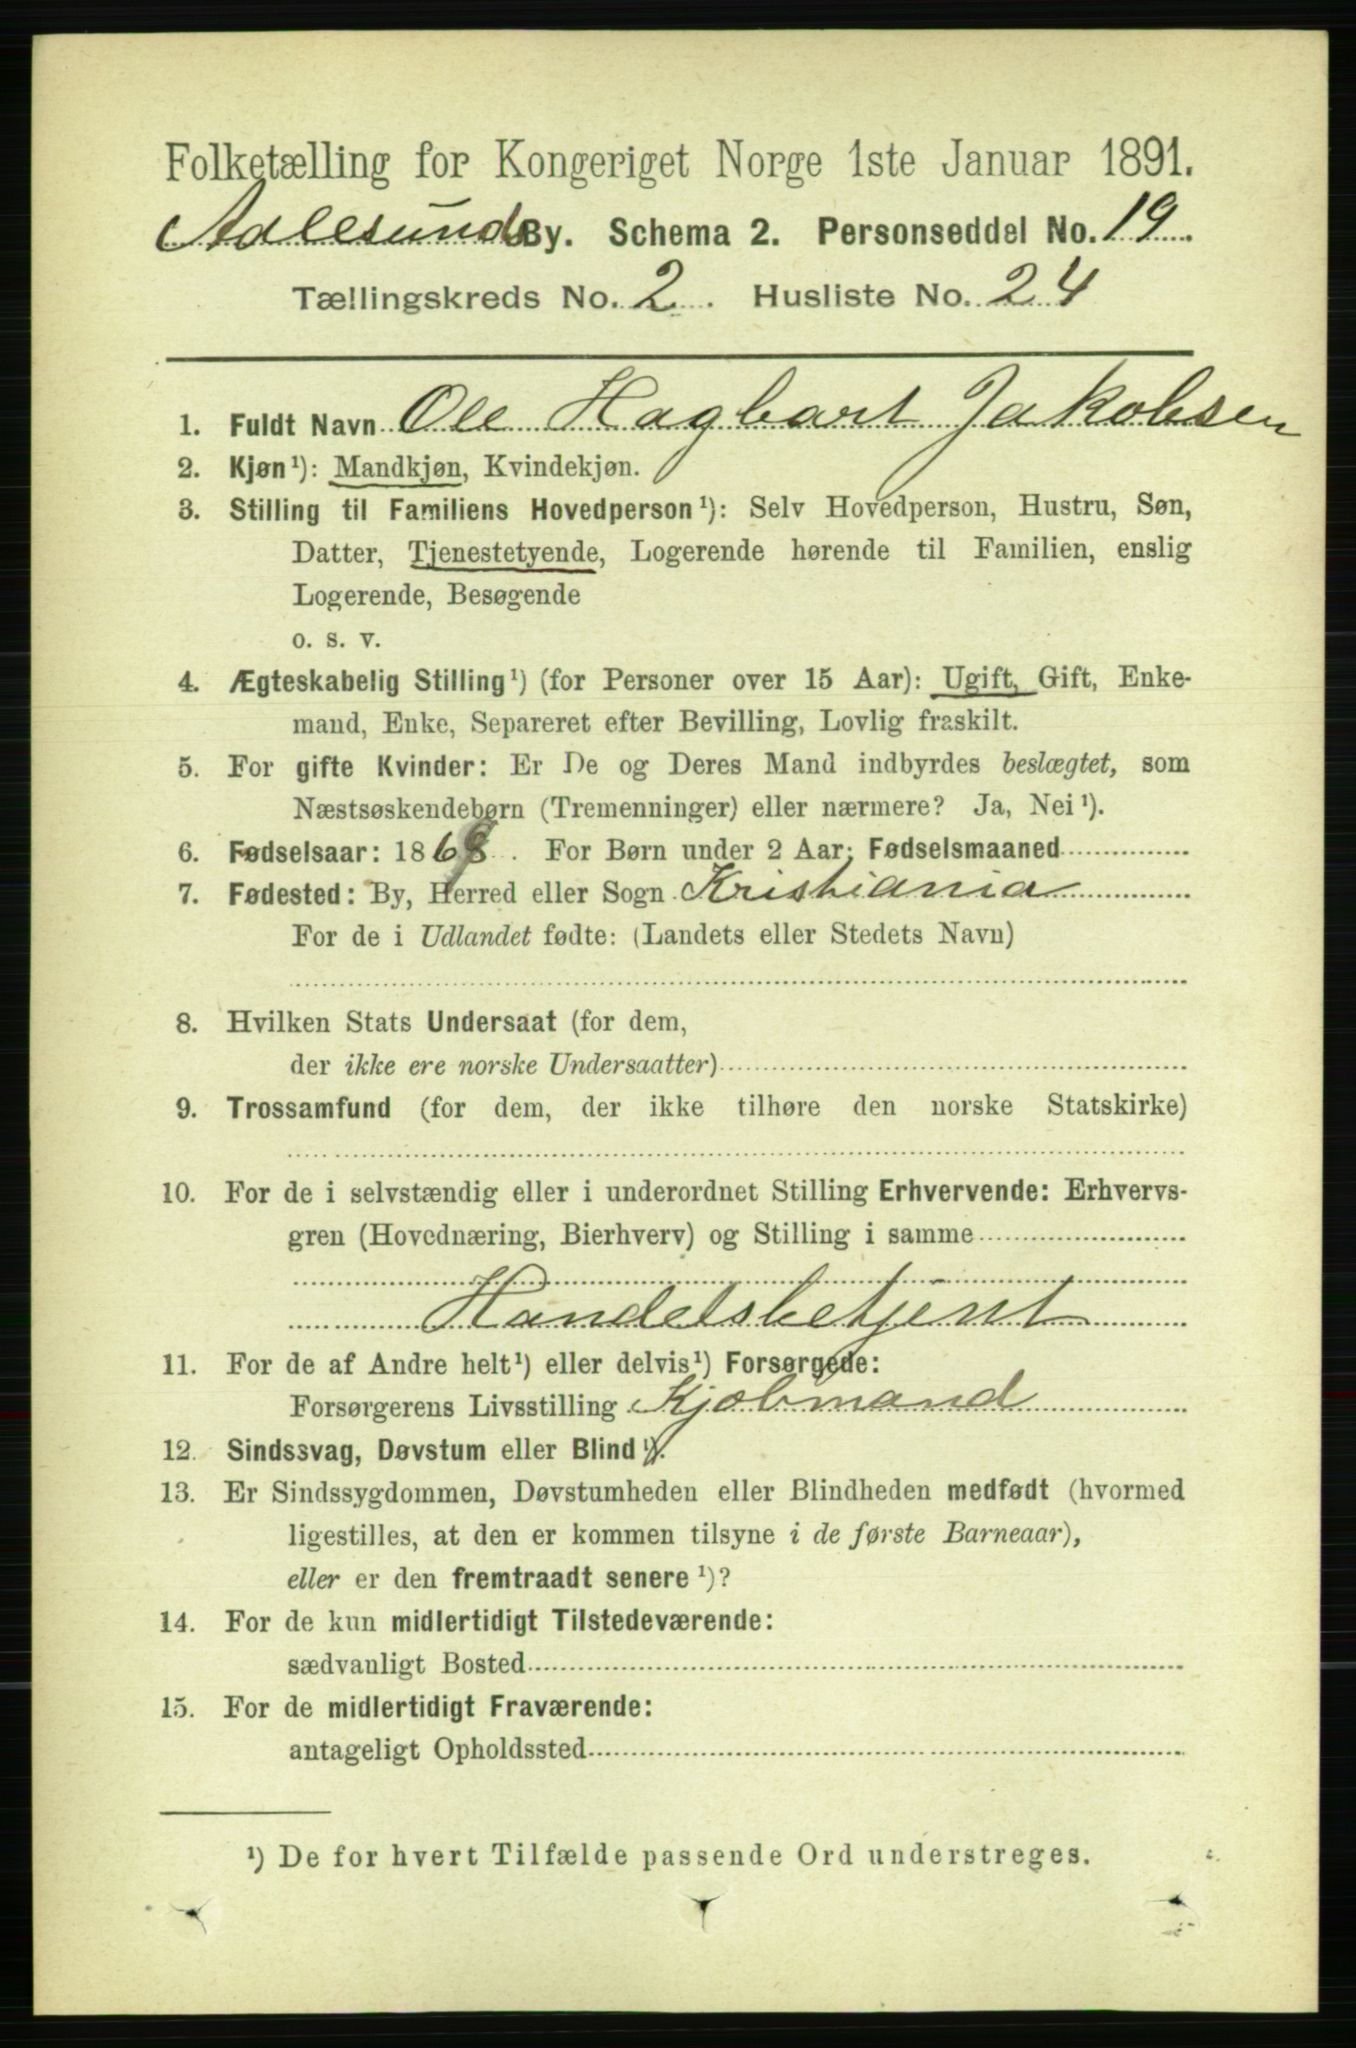 Folketælling for Kongeriget Norge 1ste Januar 1891.
Aalesunds By. Schema 2. Personseddel No. 19.
Tællingskreds No. 2. Husliste No. 24
1. Fuldt Navn Ole Hagbart Jakobsen
2. Kjøn¹): Mandkjøn, Kvindekjøn.
3. Stilling til Familiens Hovedperson¹): Selv Hovedperson, Hustru, Søn,
Datter, Tjenestetyende, Logerende hørende til Familien, enslig
Logerende, Besøgende
o. s. v.
4. Ægteskabelig Stilling¹) (for Personer over 15 Aar): Ugift, Gift, Enke-
mand, Enke, Separeret efter Bevilling, Lovlig fraskilt.
5. For gifte Kvinder: Er De og Deres Mand indbyrdes beslægtet, som
Næstsøskendebørn (Tremenninger) eller nærmere? Ja, Nei¹).
6. Fødselsaar: 186 . For Børn under 2 Aar: Fødselsmaaned
7. Fødested: By, Herred eller Sogn Kristiania
For de i Udlandet fødte: (Landets eller Stedets Navn)
8. Hvilken Stats Undersaat (for dem,
der ikke ere norske Undersaatter)
9. Trossamfund (for dem, der ikke tilhøre den norske Statskirke)
10. For de i selvstændig eller i underordnet Stilling Erhvervende: Erhvervs-
gren (Hovednæring, Bierhverv) og Stilling i samme
Handelsbetjent
11. For de af Andre helt¹) eller delvis¹) Forsørgede:
Forsørgerens Livsstilling Kjøbmand
12. Sindssvag, Døvstum eller Blind¹).
13. Er Sindssygdommen, Døvstumheden eller Blindheden medfødt (hvormed
ligestilles, at den er kommen tilsyne i de første Barneaar),
eller er den fremtraadt senere¹)?
14. For de kun midlertidigt Tilstedeværende:
sædvanligt Bosted
15. For de midlertidigt Fraværende:
antageligt Opholdssted
¹) De for hvert Tilfælde passende Ord understreges.